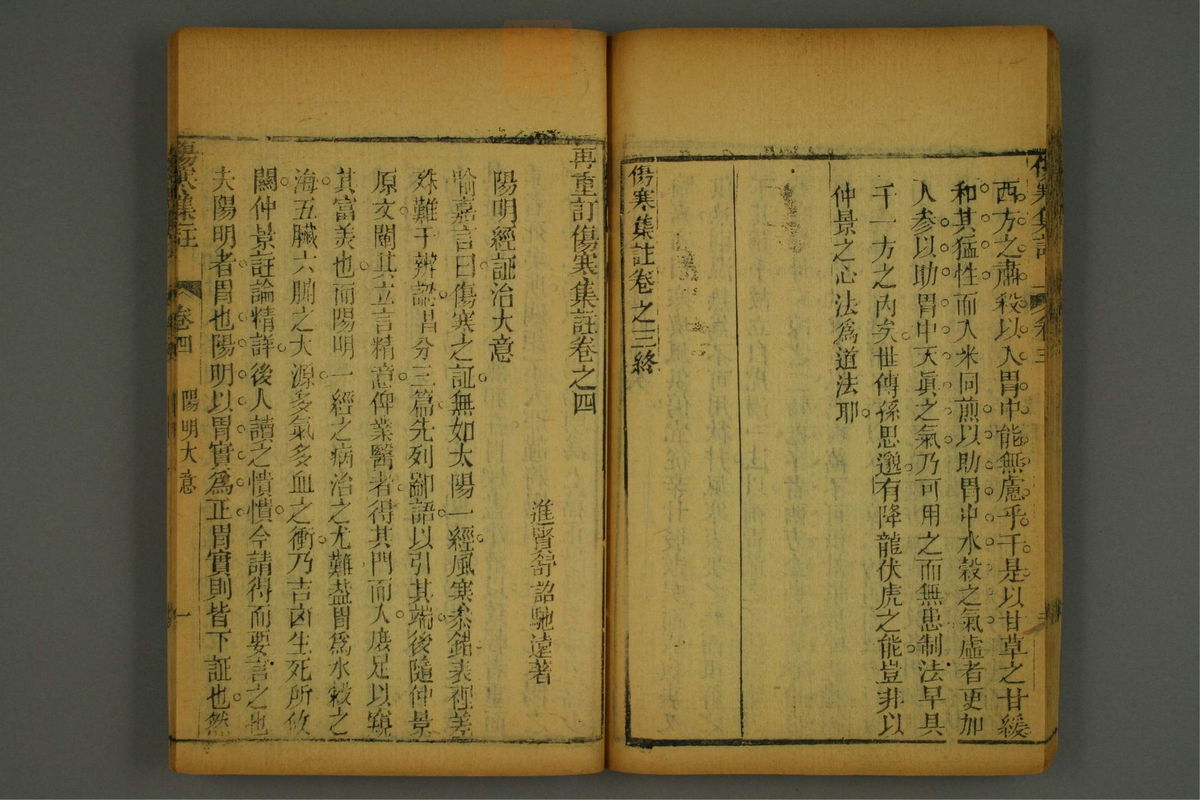 傷寒集註 卷三
西方之肅殺以入胃中能無慮乎于是以甘草之甘緩
和其猛性而入米同煎以助胃中水穀之氣虛者更加
人参以助胃中天眞之氣乃可用之而無患制法早具
千一方之內矣世傳孫思邈有降龍伏虎之能豈非以
仲景之心法爲道法耶
傷寒集註卷之三終
再重訂傷寒集註卷之四
進賢舒詔馳遠著
陽明經証治大意
喻嘉言曰傷寒之証無如太陽一經風寒叅錯表裡差
殊難于辨認昔分三篇先列鄙語以引其端後隨仲景
原文闡其立言精意俾業醫者得其門而入庶足以窺
其富美也而陽明一經之病治之尤難盖胃爲水穀之
海五臟六腑之大源多氣多血之衝乃吉凶生死所攸
關仲景註論精詳後人讀之憒憒今請得而要言之也
夫陽明者胃也陽明以胃實爲正胃實則皆下証也然
傷寒集註 卷四 陽明大意 一